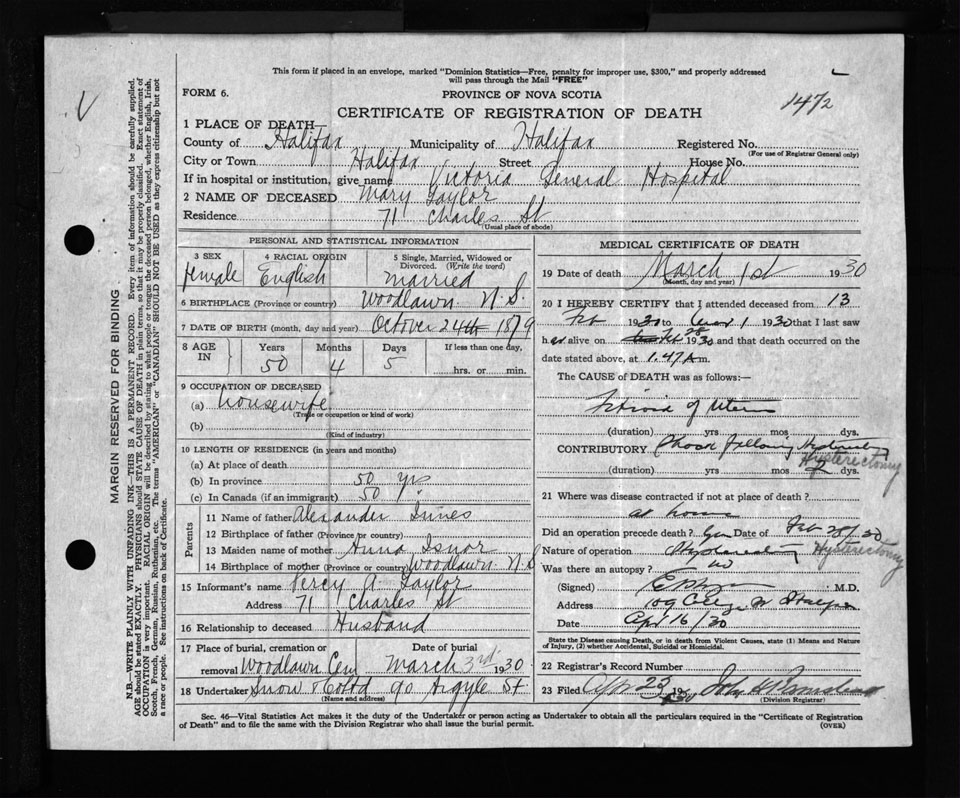 This form if placed in an envelope, marked "Dominion Statistics—Free, penalty for improper use, $300," and properly addressed
will pass through the Mail "FREE"
FORM 6.
PROVINCE OF NOVA SCOTIA
1472
CERTIFICATE OF REGISTRATION OF DEATH
1 PLACE OF DEATH—
County of Halifax Municipality of Halifax Registered No.
(For use of Registrar General only)
City or Town Halifax Street House No.
If in hospital or institution, give name Victoria General Hospital
2 NAME OF DECEASED Mary Taylor
Residence 71 Charles St
(Usual place of abode)
MARGIN RESERVED FOR BINDING
N.B.—WRITE PLAINLY WITH UNFADING INK—THIS IS A PERMANENT RECORD. Every item of information should be carefully supplied.
AGE should be stated EXACTLY. PHYSICIANS should STATE CAUSE OF DEATH in plain terms, so that it may be properly classified. Exact statement of
OCCUPATION is very important. RACIAL ORIGIN will be described by stating to what people or tongue the deceased person belonged, whether English, Irish,
Scotch, French, German, Russian, Ruthenian, etc. The terms "AMERICAN" or "CANADIAN" SHOULD NOT BE USED as they express citizenship but not
a race or people. See instructions on back of Certificate.
PERSONAL AND STATISTICAL INFORMATION
3 SEX
female
4 RACIAL ORIGIN
English
5 Single, Married, Widowed or
Divorced. (Write the word)
married
6 BIRTHPLACE (Province or country) Woodlawn N.S.
7 DATE OF BIRTH (month, day and year) October 24th 1879
8 AGE IN
Years Months Days If less than one day,
50 4 5 hrs. or min.
9 OCCUPATION OF DECEASED
(a) housewife
(Trade or occupation or kind of work)
(b)
(Kind of industry)
10 LENGTH OF RESIDENCE (in years and months)
(a) At place of death
(b) In province 50 yrs
(c) In Canada (if an immigrant) 50
Parents
11 Name of father Alexander Innes
12 Birthplace of father (Province or country)
13 Maiden name of mother Anna Isnor
14 Birthplace of mother (Province or country) Woodlawn N.S
15 Informant's name Percy A. Taylor
Address 71 Charles St
16 Relationship to deceased Husband
17 Place of burial, cremation or removal Woodlawn Cem
Date of burial March 3rd 1930
18 Undertaker Snow & Co Ltd 90 Argyle St
(Name and address)
MEDICAL CERTIFICATE OF DEATH
19 Date of death March 1st 1930
(Month, day and year)
20 I HEREBY CERTIFY that I attended deceased from 13
Feb 1930 to Mar 1 1930 that I last saw
her alive on Feb 28 1930 and that death occurred on the
date stated above, at 1.47 A m.
The CAUSE OF DEATH was as follows:—
Fibroid of Uterus
(duration) yrs mos dys.
CONTRIBUTORY Shock following Hysterectomy
Hysterectomy
(duration) yrs mos 2 dys.
21 Where was disease contracted if not at place of death?
at home
Did an operation precede death? Yes Date of Feb 28/30
Nature of operation Hysterectomy Hysterectomy
Was there an autopsy? no
(Signed) M.D.
Address 109 St Halifax
Date Apr 16/30
State the Disease causing Death, or in death from Violent Causes, state (1) Means and Nature
of Injury, (2) whether Accidental, Suicidal or Homicidal.
22 Registrar's Record Number
23 Filed Apr 23 1930 John
(Division Registrar)
Sec. 46—Vital Statistics Act makes it the duty of the Undertaker or person acting as Undertaker to obtain all the particulars required in the "Certificate of Registration
of Death" and to file the same with the Division Registrar who shall issue the burial permit.
(OVER)